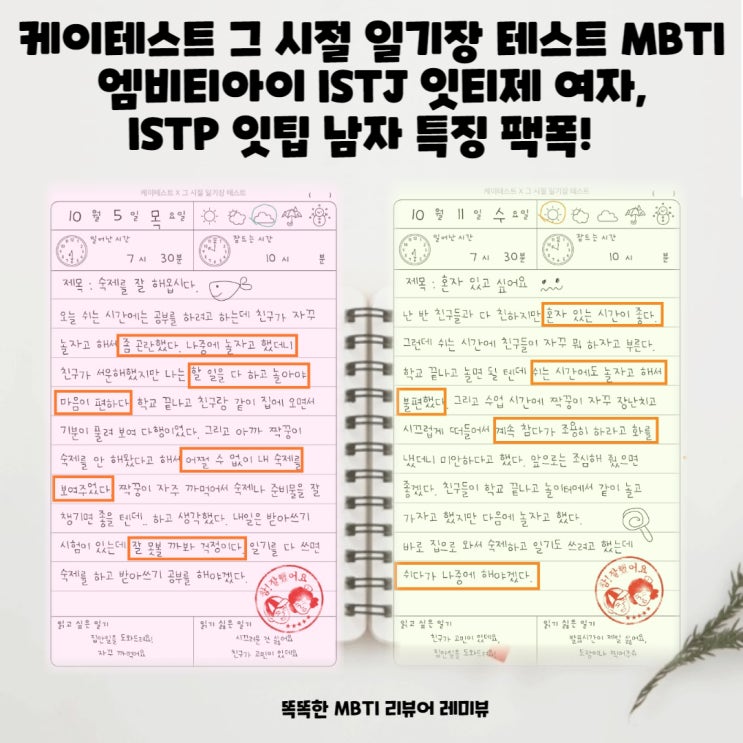 케이테스트 그 시절 일기장 테스트 MBTI
엠비티아이 ISTJ 잇티제 여자,
ISTP 잇팁 남자 특징 팩폭!
케이테스트 X 그 시절 일기장 테스트 ( )
10 월 5 일 목 요일
일어난 시간
7 시 30 분
잠드는 시간
10 시 분
제목 : 숙제를 잘 해옵시다.
오늘 쉬는 시간에는 공부를 하려고 하는데 친구가 자꾸
놀자고 해서 좀 곤란했다. 나중에 놀자고 했더니
친구가 서운해했지만 나는 할 일을 다 하고 놀아야
마음이 편하다. 학교 끝나고 친구랑 같이 집에 오면서
기분이 풀려 보여 다행이었다. 그리고 아까 짝꿍이
숙제를 안 해왔다고 해서 어쩔 수 없이 내 숙제를
보여주었다. 짝꿍이 자주 까먹어서 숙제나 준비물을 잘
챙기면 좋을 텐데.. 하고 생각했다. 내일은 받아쓰기
시험이 있는데 잘 못볼 까봐 걱정이다. 일기를 다 쓰면
숙제를 하고 받아쓰기 공부를 해야겠다.
참! 잘했어요
읽고 싶은 일기
집안일을 도와드려요!
자꾸 까먹어요
읽기 싫은 일기
시끄러운 건 싫어요
친구가 고민이 있데요
케이테스트 X 그 시절 일기장 테스트 ( )
10 월 11 일 수 요일
일어난 시간
7 시 30 분
잠드는 시간
10 시 분
제목 : 혼자 있고 싶어요
난 반 친구들과 다 친하지만 혼자 있는 시간이 좋다.
그런데 쉬는 시간에 친구들이 자꾸 뭐 하자고 부른다.
학교 끝나고 놀면 될 텐데 쉬는 시간에도 놀자고 해서
불편했다. 그리고 수업 시간에 짝꿍이 자꾸 장난치고
시끄럽게 떠들어서 계속 참다가 조용히 하라고 화를
냈더니 미안하다고 했다. 앞으로는 조심해 줬으면
좋겠다. 친구들이 학교 끝나고 놀이터에서 같이 놀고
가자고 했지만 다음에 놀자고 했다.
바로 집으로 와서 숙제하고 일기도 쓰려고 했는데
쉬다가 나중에 해야겠다.
참! 잘했어요
읽고 싶은 일기
친구가 고민이 있데요,
집안일을 도와드려요!
읽기 싫은 일기
발표시간이 제일 싫어요,
똑똑한 MBTI 리뷰어 레미뷰